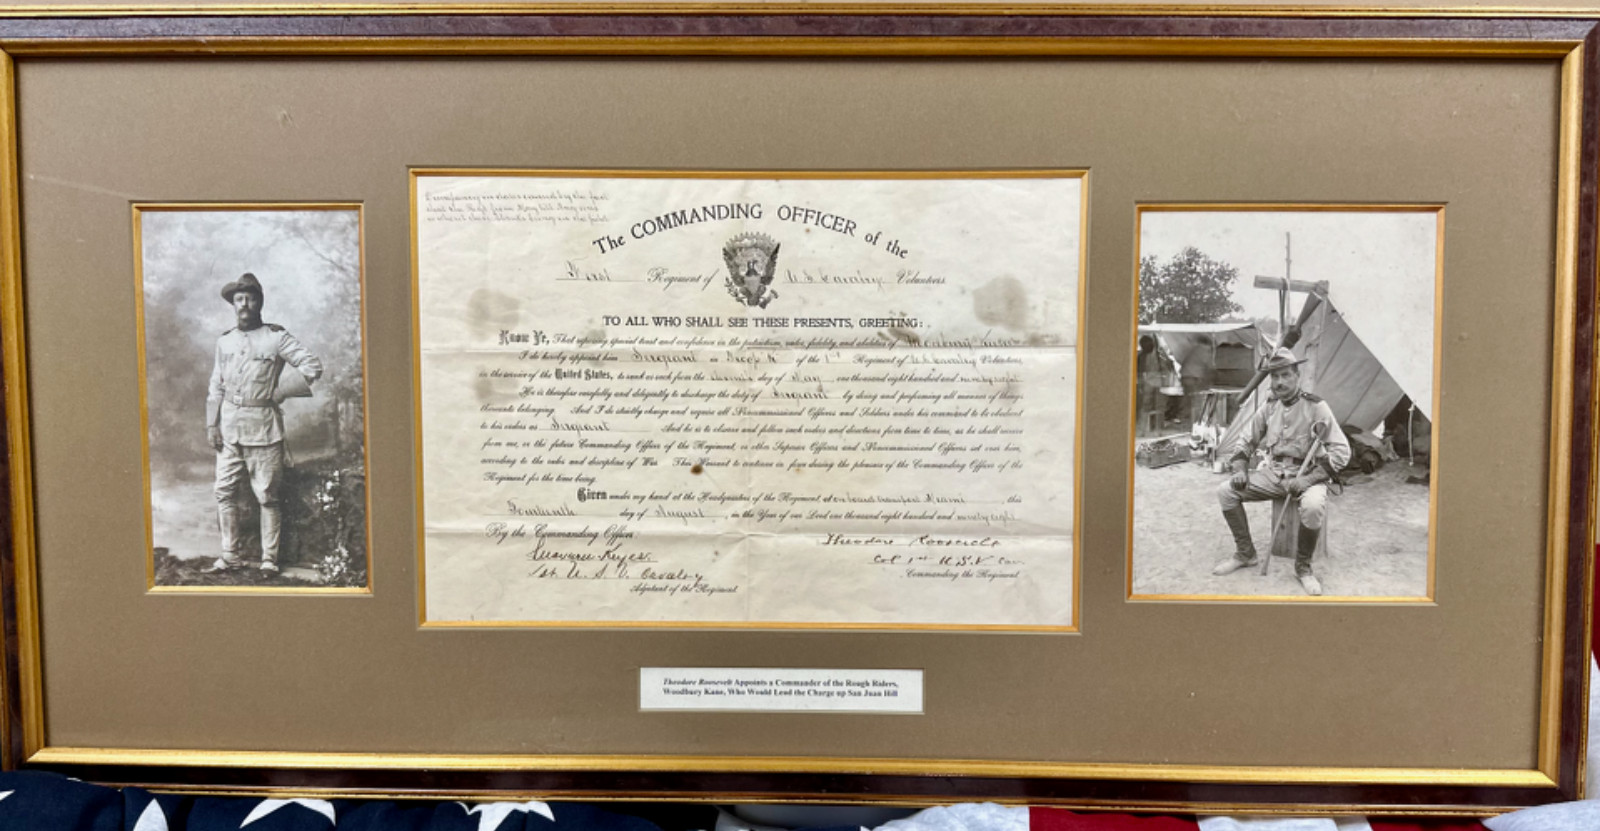 The COMMANDING OFFICER of the
First Regiment of U S Cavalry Volunteers
TO ALL WHO SHALL SEE THESE PRESENTS, GREETING:
Know Ye, That reposing special trust and confidence in the patriotism, valor, fidelity, and abilities of
I do hereby appoint him Sergeant in Troop K of the 1st Regiment of U.S. Cavalry Volunteers
in the service of the United States, to rank as such from the day of May one thousand eight hundred and ninety eight
He is therefore carefully and diligently to discharge the duty of Sergeant by doing and performing all manner of things
thereunto belonging. And I do strictly charge and require all Noncommissioned Officers and Soldiers under his command to be obedient
to his orders as Sergeant And he is to observe and follow such orders and directions from time to time, as he shall receive
from me, or the future Commanding Officer of the Regiment, or other Superior Officers and Noncommissioned Officers set over him,
according to the rules and discipline of War. This Warrant to continue in force during the pleasure of the Commanding Officer of the
Regiment for the time being.
Given under my hand at the Headquarters of the Regiment on board transport Miami, this
Fourteenth day of August, in the Year of our Lord one thousand eight hundred and ninety eight
By the Commanding Officer
Theodore Roosevelt
Keyes.
Col 1st U.S.V Cav.
1st U. S. V. Cavalry
Commanding the Regiment
Adjutant of the Regiment
Theodore Roosevelt Appoints a Commander of the Rough Riders,
Woodbury Kane, Who Would Lead the Charge up San Juan Hill